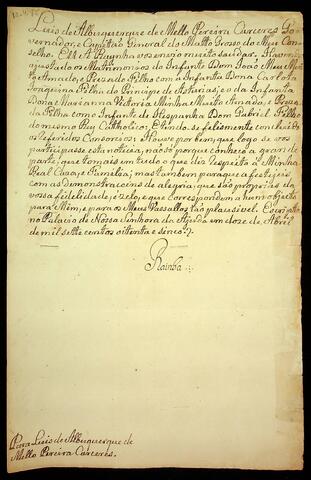 Luis de Albuquerque de Mello Pereira Carceres Go-
vernador, e Capitaõ General do Matto Grosso do Meu Con-
selho. EU A Raynha vos envio muito saudar. Havendo
ajustado os Matrimonios do Infante Dom Joaõ Meu Mui-
to Amado, e Prezado Filho com a Infanta Dona Carlota
Joaquina Filha do Principe de Asturias; e da Infanta
Dona Marianna Victoria Minha Muito Amada, e Preza-
da Filha com o Infante de Hespanha Dom Gabriel Filho
do mesmo Rey Catholico: E tendo-se felismente concluido
os referidos Consorcios: Houve por bem, que logo se vos
participasse esta noticia, naõ só porque conheço a gran de
parte, que tomais em tudo o que diz respeito á Minha
Real Caza, e Familia; mas tambem para que a festejeis
com as demonstracoens de alegria, que saõ proprias da
vossa fidelidade, e zelo, e que correspondem a hum objecto
para Mim, e para os Meus Vassallos taõ plausivel. Escripta
no Palacio de Nossa Senhora da Ajuda em doze de Abril
de mil sette centos oitenta e sinco.
Rainha
Para Luis de Albuquerque de
Mello Pereira Carceres.